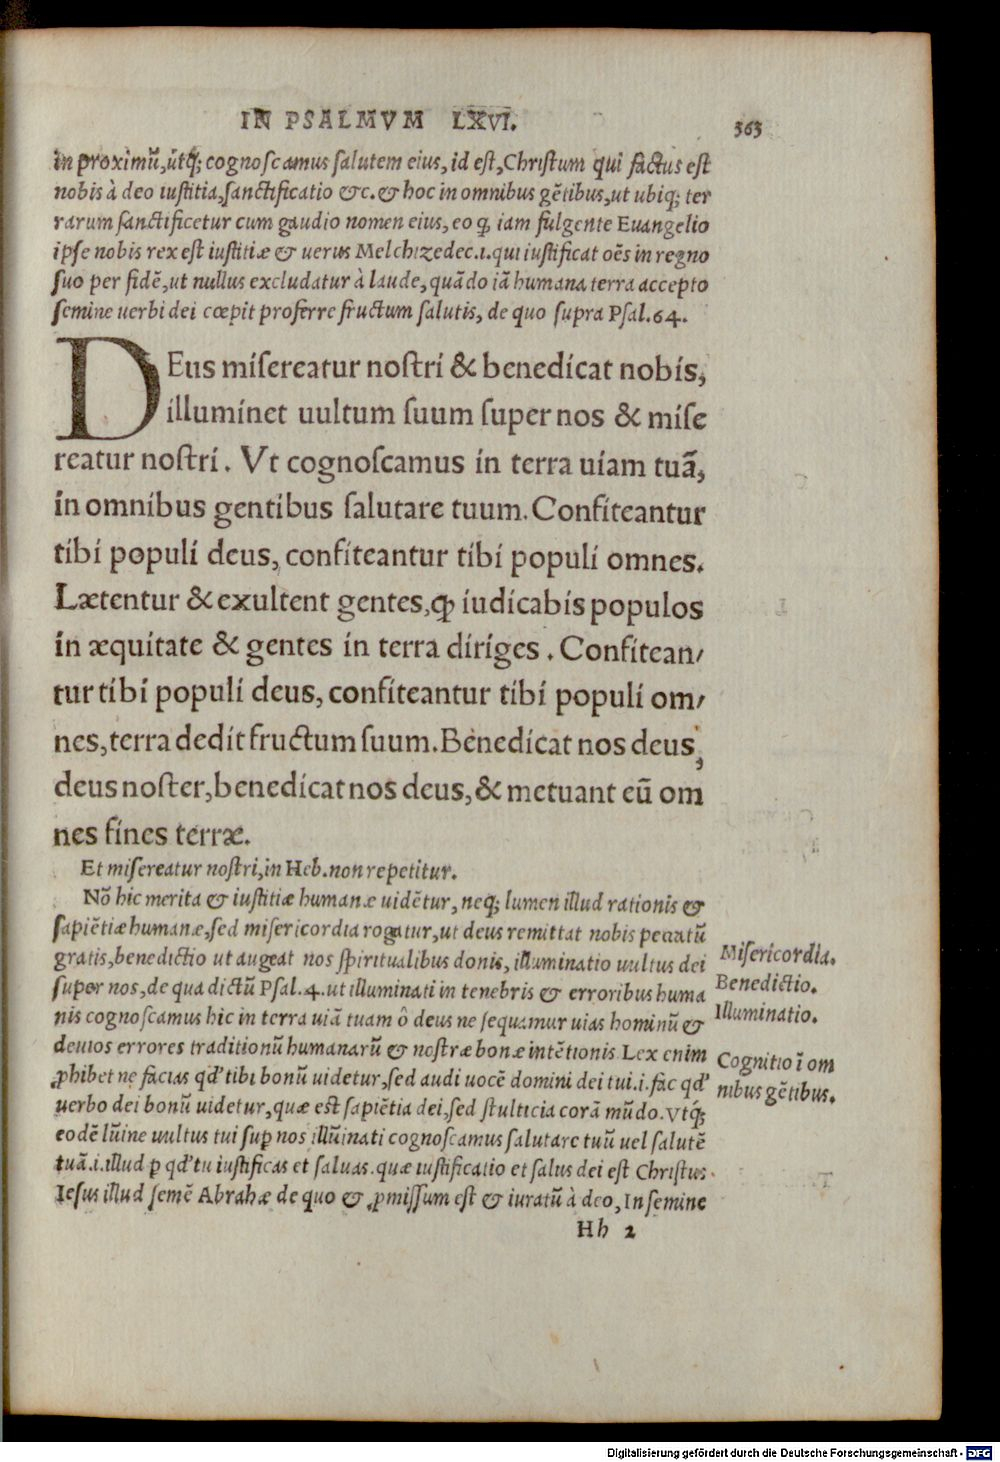 IN PSALMVM LXVI. 363
in proximũ, utq; cognoscamus salutem eius, id est, Christum qui factus est
nobis à deo iustitia, sanctificatio &c. & hoc in omnibus gẽtibus, ut ubiq; ter
rarum sanctificetur cum gaudio nomen eius, eo ꝙ iam fulgente Euangelio
ipse nobis rex est iustitiæ & uerus Melchizedec .1. qui iustificat oẽs in regno
suo per fidẽ, ut nullus excludatur à laude, quãdo iã humana terra accepto
semine uerbi dei cœpit proferre fructum salutis, de quo supra Psal. 64.
DEus misereatur nostri & benedicat nobis,
illuminet uultum suum super nos & mise
reatur nostri. Vt cognoscamus in terra uiam tuã,
in omnibus gentibus salutare tuum. Confiteantur
tibi populi deus, confiteantur tibi populi omnes.
Lætentur & exultent gentes, ꝙ iudicabis populos
in æquitate & gentes in terra diriges. Confitean/
tur tibi populi deus, confiteantur tibi populi om/
nes, terra dedit fructum suum. Benedicat nos deus,
deus noster, benedicat nos deus, & metuant eũ om
nes fines terræ.
Et misereatur nostri, in Heb. non repetitur.
Nõ hic merita & iustitiæ humanæ uidẽtur, neq; lumen illud rationis &
sapiẽtiæ humanæ, sed misericordia rogatur, ut deus remittat nobis peccatũ
gratis, benedictio ut augeat nos spiritualibus donis, illuminatio uultus dei
super nos, de qua dictũ Psal. 4. ut illuminati in tenebris & erroribus huma
nis cognoscamus hic in terra uiã tuam ô deus ne sequamur uias hominũ &
deuios errores traditionũ humanarũ & nostræ bonæ intẽtionis. Lex enim
ꝓhibet ne facias qd' tibi bonũ uidetur, sed audi uocẽ domini dei tui .i. fac qd'
uerbo dei bonũ uidetur, quæ est sapiẽtia dei, sed stulticia corã mũdo. Vtq;
eodẽ lũine uultus tui suꝑ nos illũinati cognoscamus salutare tuũ uel salutẽ
tuã .i. illud ꝑ qd' tu iustificas et saluas. quæ iustificatio et salus dei est Christus
Iesus illud semẽ Abrahæ de quo & ꝓmissum est & iuratũ à deo, In semine
Hh 2
Misericordia.
Benedictio.
Illuminatio.
Cognitio ĩ om
nibus gẽtibus.
Digitalisierung gefördert durch die Deutsche Forschungsgemeinschaft - DFG